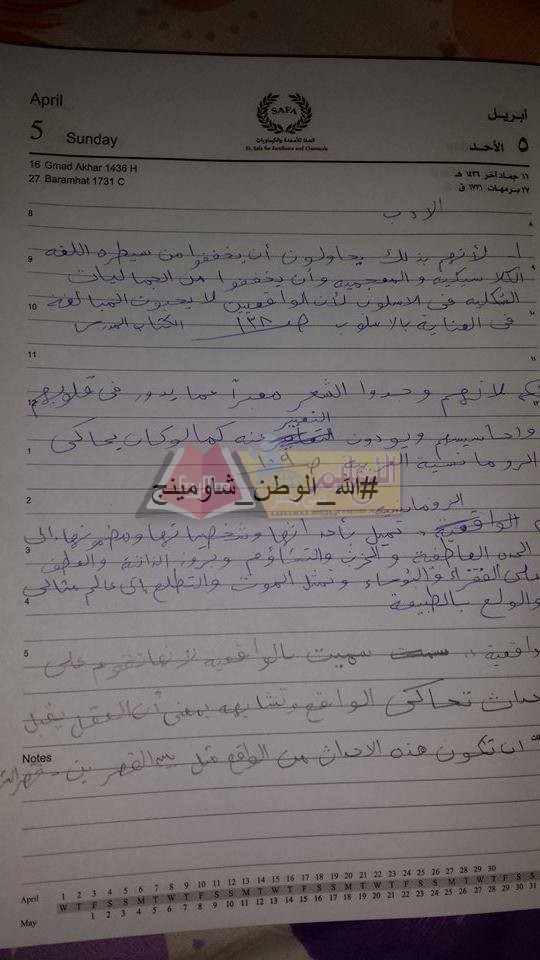 April
أبريل
5 Sunday
٥ الأحد
SAFA
الصفا للأسمدة والكيماويات
El. Safa for Fertilizers and Chemicals
16 Gmad Akhar 1436 H
١٦ جماد آخر ١٤٣٦ هـ
27 Baramhat 1731 C
٢٧ برمهات ١٧٣١ ق
الادب
8
9
١- لأنهم بذلك يحاولون أن يخففوا من سيطره اللغه
الكلاسيكية والمعجميه وأن يخففوا من الجماليات
10
الشكليه فى الاسلوب لأن الواقعيين لا يحبون المبالغة
فى العناية بالاسلوب ص ١٣٨ الكتاب المدرسى
11
12
لأنهم وجدوا الشعر معبراً عما يدور فى قلوبهم
1
واحاسيسهم ويودون التعبير عنه كما لو كان يحاكى
الرومانسية ص ١٠٩
#الله_الوطن_شاومينج
2
الرومانسية
الواقعية. تميل بأحداثها وشخصياتها ومضمونها إلى
3
الحده العاطفية والحزن والتشاؤم وبروز الذاتية والعطف
على الفقراء والبؤساء وتمثل الموت والتطلع إلى عالم مثالى
4
والولع بالطبيعة
5
واقعية: سميت بالواقعيه لأنها تقوم على
احداث تحاكى الواقع وتشابهه بمعنى أن العقل يقبل
Notes
ان تكون هذه الاحداث من الواقع مثل بين القصرين -
April 1 2 3 4 5 6 7 8 9 10 11 12 13 14 15 16 17 18 19 20 21 22 23 24 25 26 27 28 29 30
W T F S S M T W T F S S M T W T F S S M T W T F S S M T W T F S S
May 1 2 3 4 5 6 7 8 9 10 11 12 13 14 15 16 17 18 19 20 21 22 23 24 25 26 27 28 29 30 31